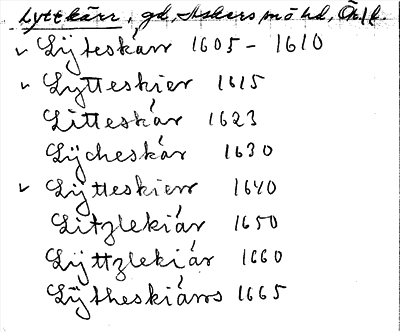 Lyttkärr, gd, Askers sn o hd, Ör. l.
✓ Lÿteskärr 1605 - 1610
✓ Lytteskier 1615
Litteskár 1623
Lÿcheskár 1630
✓ Lÿtteskierr 1640
Litzlekiár 1650
Lÿttzlekiár 1660
Lÿtheskiárrs 1665